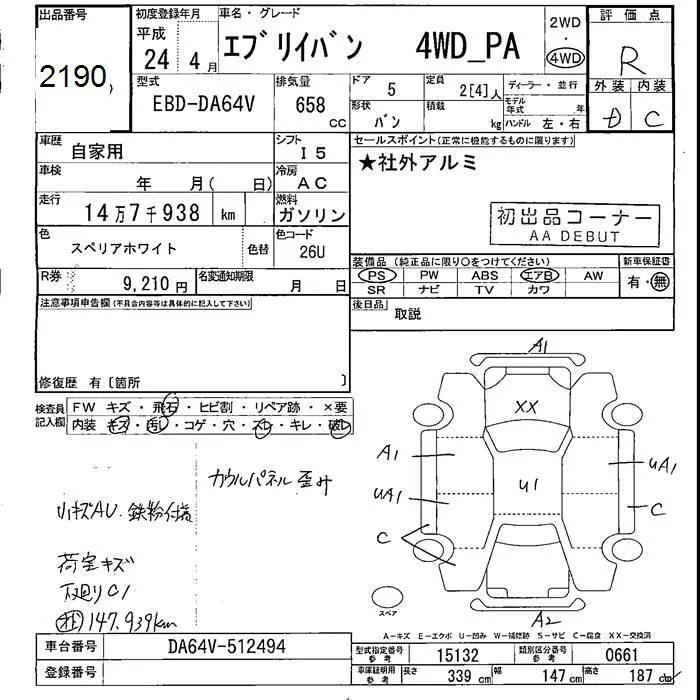 出品番号 初度登録年月 車名・グレード 2WD 評価点
平成 エブリイバン 4WD_PA ・
24年 4月 4WD R
2190
型式 排気量 ドア 5 定員 2[4]人 ディーラー・並行 外装 内装
EBD-DA64V 658 CC 形状 バン 積載 kg モデル年式 年 C
ハンドル 左・右
車歴 自家用 シフト I5 セールスポイント(正常に機能するものに限ります)
車検 年 月( 日) 冷房 AC ★社外アルミ
走行 14万7千938 km 燃料 ガソリン 初出品コーナー
AA DEBUT
色 スペリアホワイト 色替 色コード 26U
装備品(純正品に限り○をつけてください) 新車保証書
R券 9,210円 名変通知期限 月 日 PS PW ABS エアB AW 有・無
SR ナビ TV カワ
注意事項申告欄(不具合内容等は具体的に記入して下さい) 後日品 取説
修復歴 有〔箇所 〕
検査員記入欄 FW キズ・飛石・ヒビ割・リペア跡・×要
内装 キズ・汚レ・コゲ・穴・スレ・キレ・破レ
A1
XX
A1
UA1
U1
UA1
C
C
A2
スペア
カウルパネル歪み
小キズAU.鉄粉付着
荷室キズ
下廻りC1
147.939km
A-キズ E-エクボ U-凹み W-補修跡 S-サビ C-腐食 XX-交換済
車台番号 DA64V-512494 型式指定番号 参考 15132 類別区分番号 参考 0661
登録番号 車庫証明用 参考 長さ 339 cm 幅 147 cm 高さ 187 cm